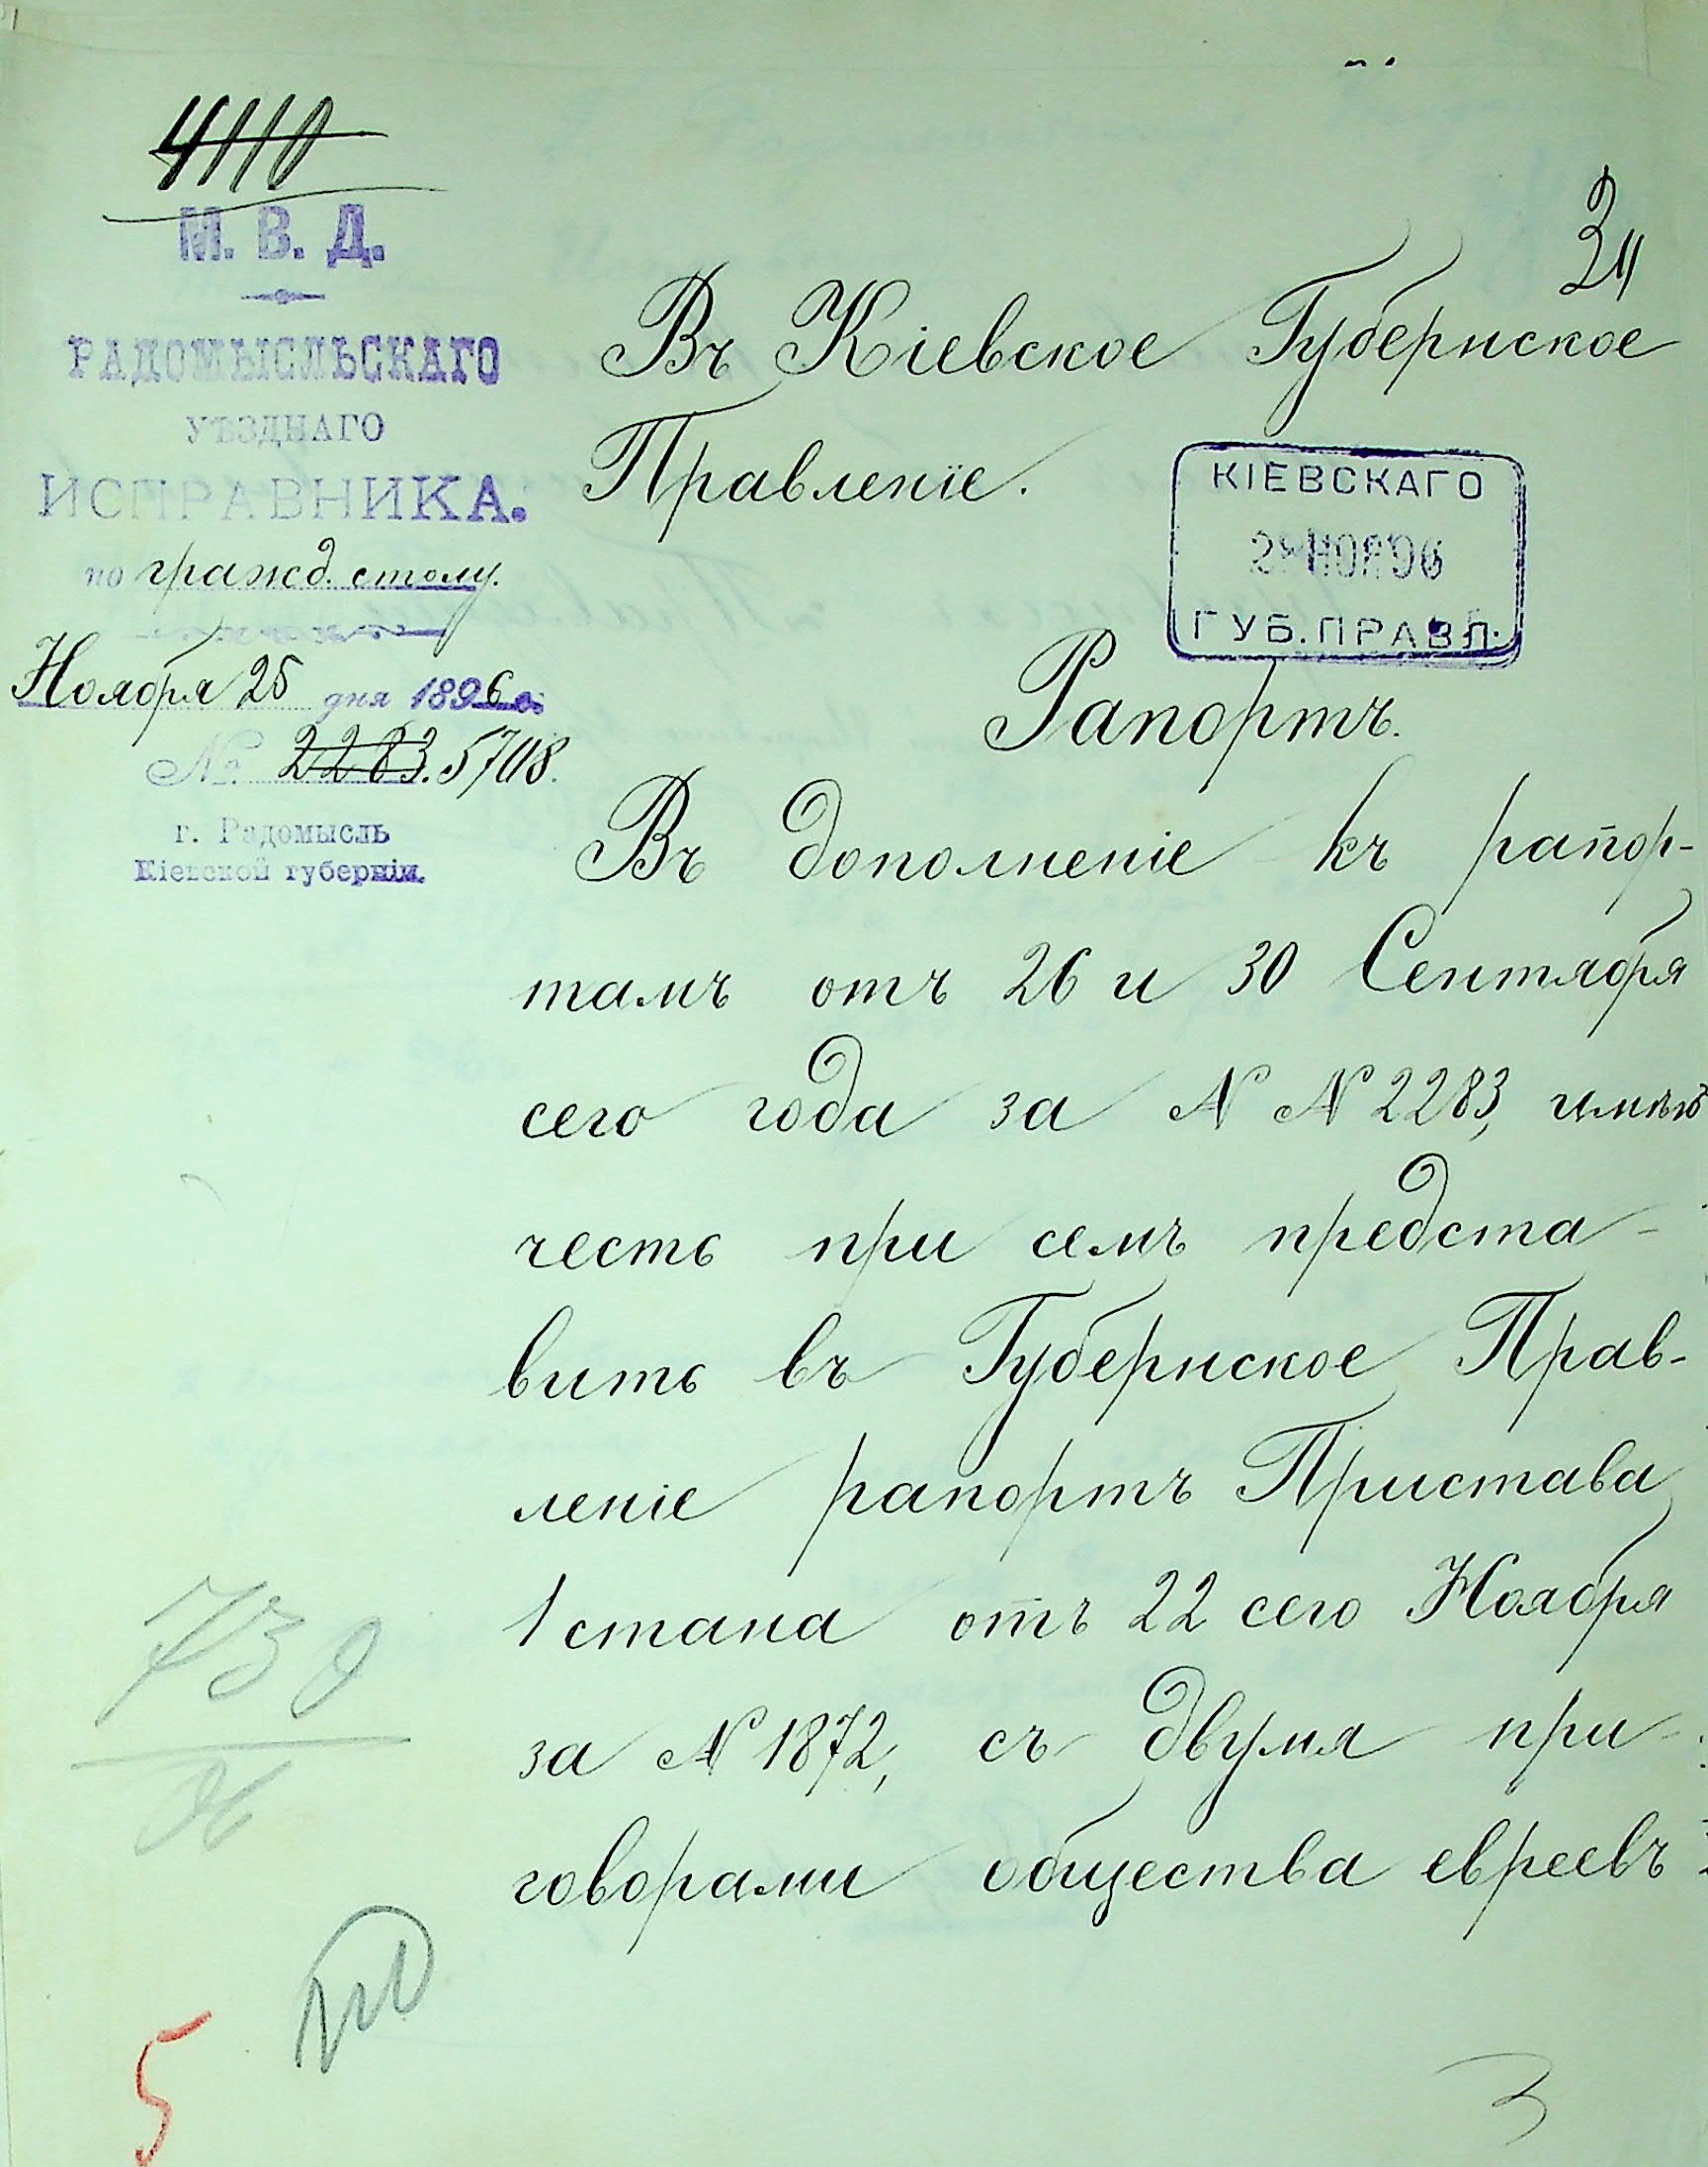 4110
М. В. Д.
РАДОМЫСЛЬСКАГО
УѢЗДНАГО
ИСПРАВНИКА.
по гражд. столу.
Ноября 25 дня 1896 г.
№ 2283. 5708.
г. Радомысль
Кіевской губерніи.
Въ Кіевское Губернское
Правленіе.
КІЕВСКАГО
НОЯ 96
ГУБ. ПРАВЛ.
Рапортъ.
Въ дополненіе къ рапор-
тамъ отъ 26 и 30 Сентября
сего года за N N 2283, имѣю
честь при семъ предста-
вить въ Губернское Прав-
леніе рапортъ Пристава
1 стана отъ 22 сего Ноября
за N 1872, съ двумя при-
говорами общества евреевъ
730
96
5
3